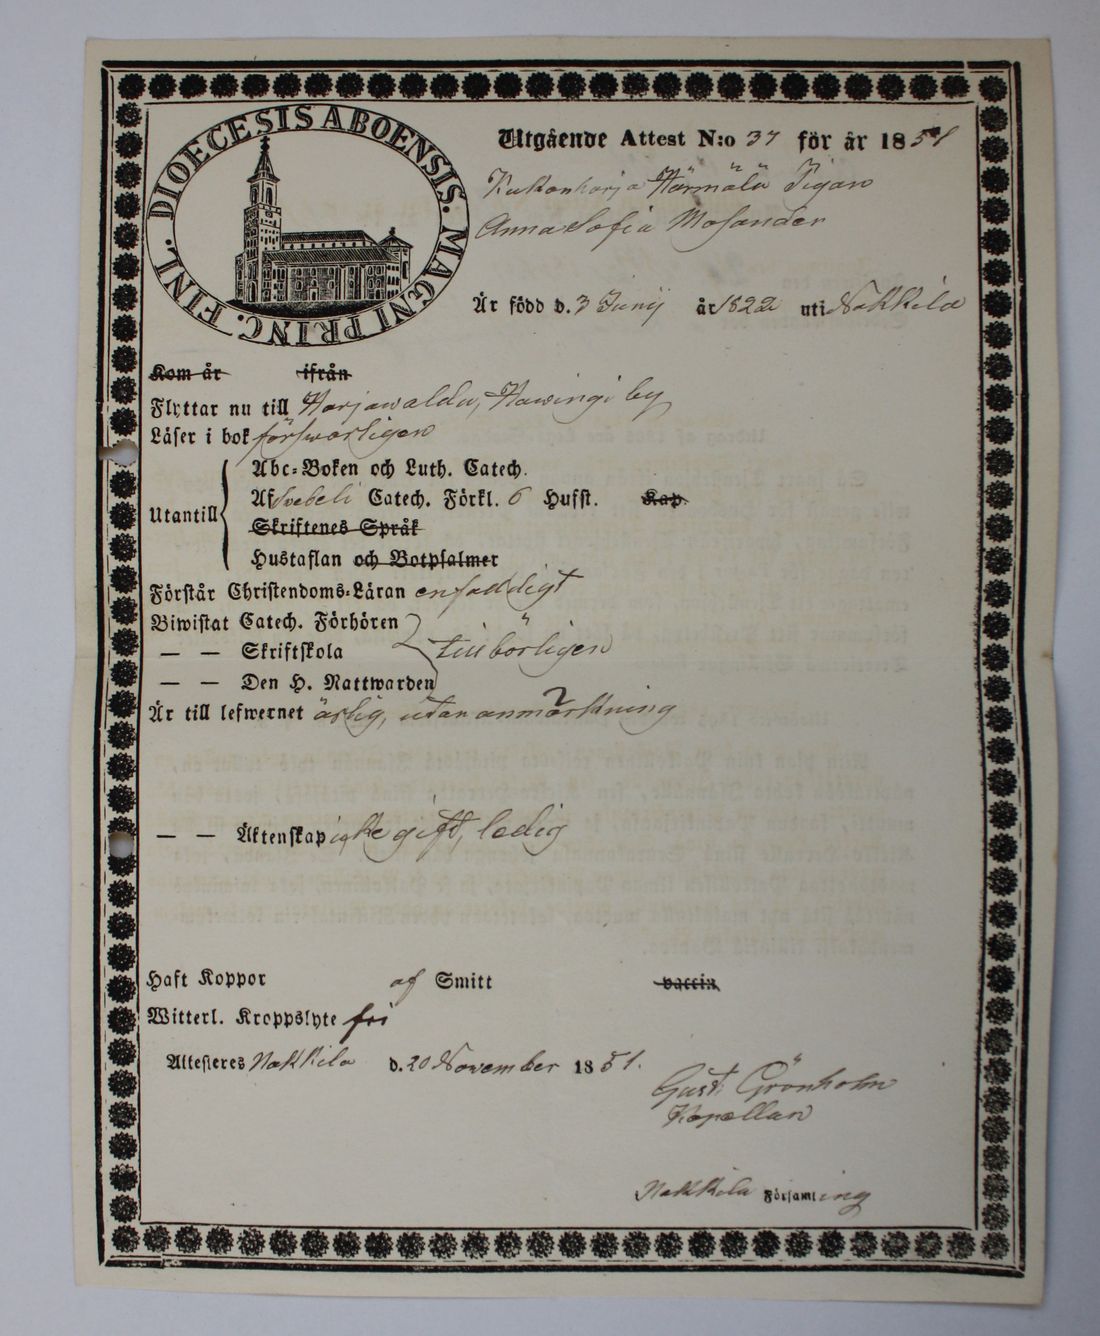 DIOECESIS ABOENSIS. MAGNI PRINC. FINL.
Utgående Attest N:o 37 för år 1851
Kukonharja Härmälä Pigan
Anna Sofia Mosander
Är född d. 3 Junij år 1822 uti Nakkila
Kom år ifrån
Flyttar nu till Harjawalda, Hawingi by
Läser i bok försvarligen
Abc-Boken och Luth. Catech.
Af Svebeli Catech. Förkl. 6 Hufst. Kap.
Utantill
Skriftenes Språk
Hustaflan och Botpsalmer
Förstår Christendoms-Läran enfaldigt
Biwistat Catech. Förhören
— — Skriftskola tillbörligen
— — Den H. Nattwarden
Är till lefwernet ärlig, utan anmärkning
— — Äktenskap icke gift, ledig
Haft Koppor af Smitt vaccin
Witterl. Kroppslyte fri
Attesteres Nakkila d. 20 November 1851.
Gust. Grönholm
Kapellan
Nakkila Församling